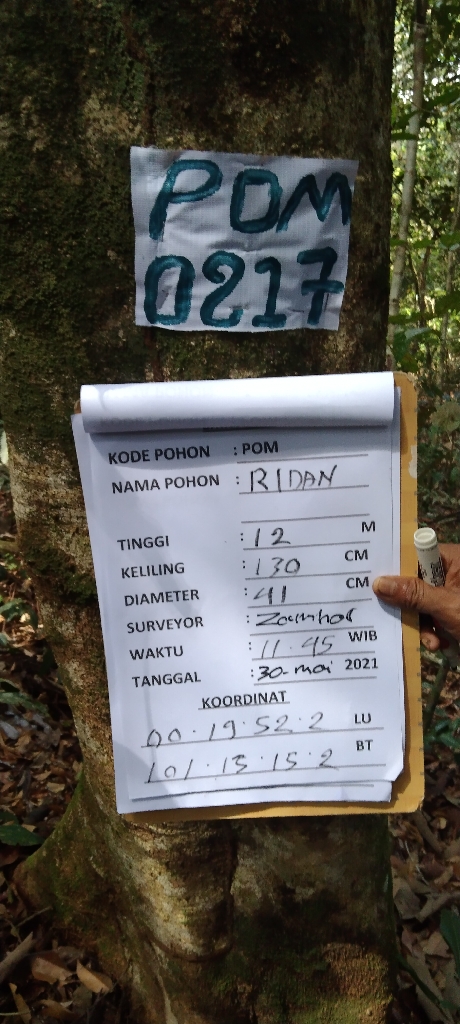 POM
0217
KODE POHON : POM
NAMA POHON : RIDAN
TINGGI : 12 M
KELILING : 130 CM
DIAMETER : 41 CM
SURVEYOR :
WAKTU : 11.45 WIB
TANGGAL : 30-mai 2021
KOORDINAT
00.19.52.2 LU
101.13.15.2 BT